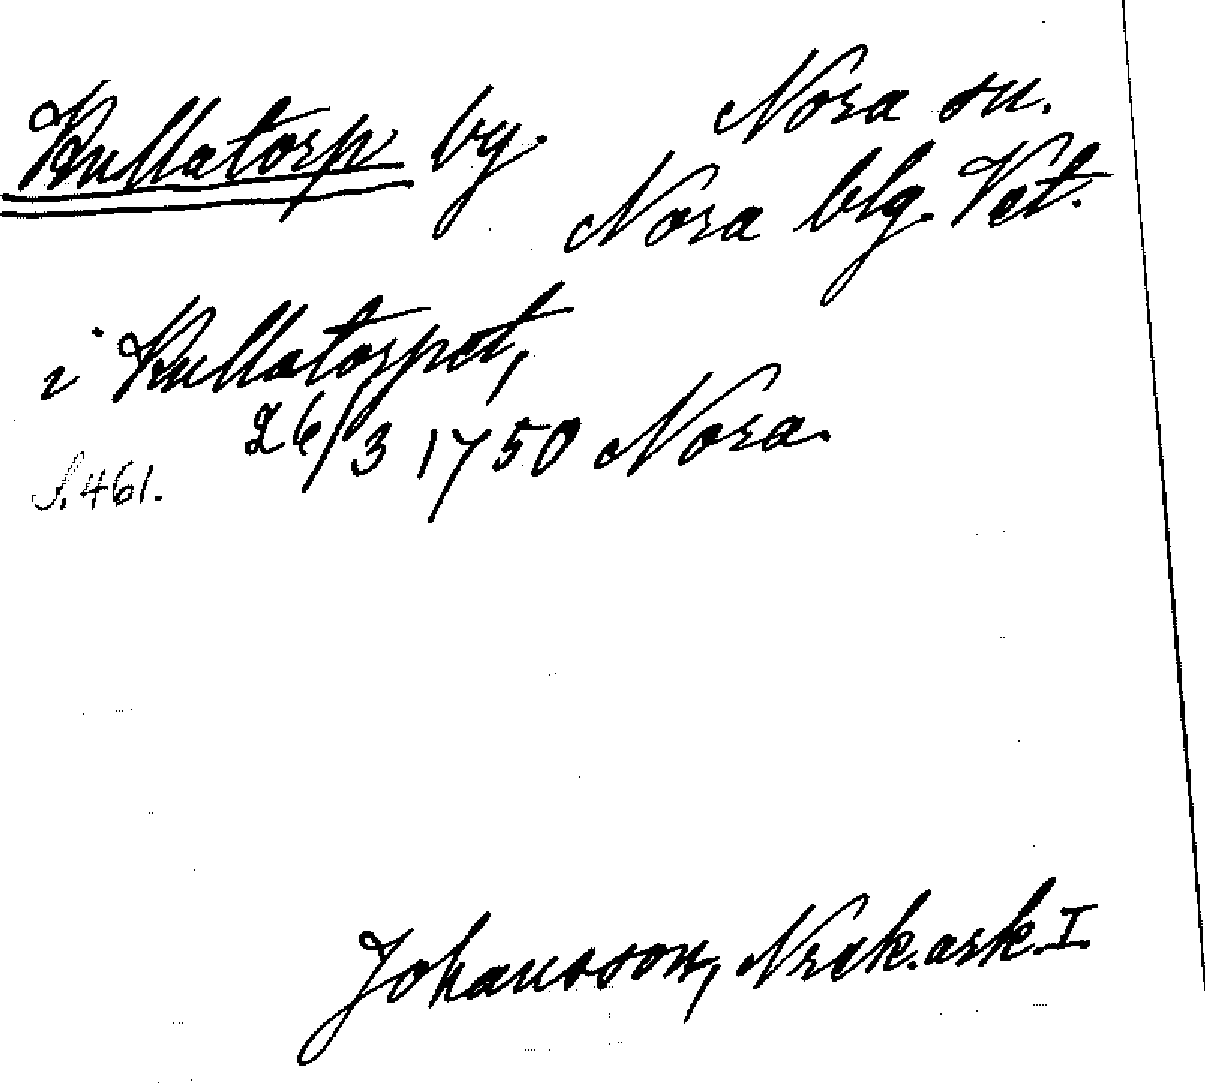 Kullatorp by. Nora sn.
Nora blg. Vst.
i Kullatorpet,
26/3 1750 Nora.
S. 461.
Johansson, Nrik. ark. I